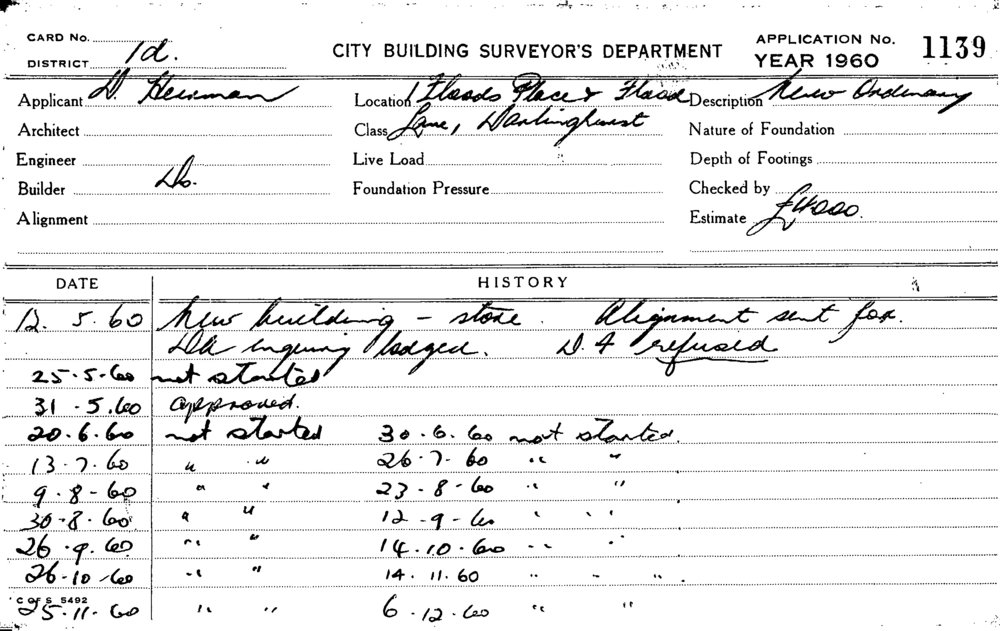 CARD No.
DISTRICT 1d.
CITY BUILDING SURVEYOR'S DEPARTMENT
APPLICATION No. 1139
YEAR 1960
Applicant D. Heinman
Location 1 Floods Place & Flood
Description New Ordinary
Architect
Class Lane, Darlinghurst
Nature of Foundation
Engineer
Live Load
Depth of Footings
Builder Do.
Foundation Pressure
Checked by
Alignment
Estimate £4000.
DATE HISTORY
12. 5. 60 New building - store. Alignment sent for.
DA inquiry lodged. D.A refused
25-5-60 not started
31-5.60 approved.
20.6.60 not started 30.6.60 not started.
13.7.60 " " 26-7-60 " "
9.8-60 " " 23-8-60 " "
30-8.60 " " 12-9-60 " "
26.9.60 " " 14.10.60 " "
26-10-60 " " 14.11.60 " " "
C OF S 5492
25.11.60 " " 6.12.60 " "